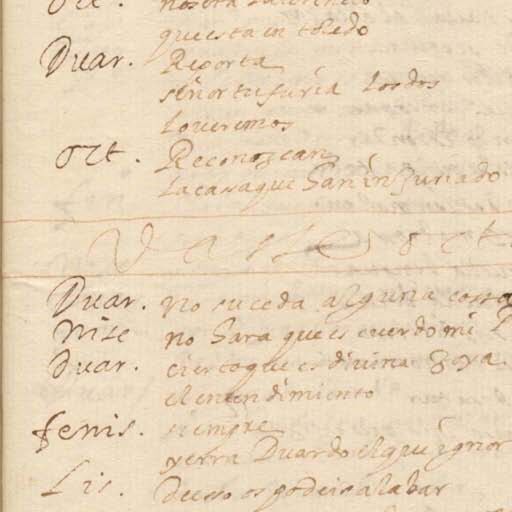 que esta en toledo
Duar. Reporta
señor tu furia los dos
loveremos
Ort. Reconozcan
la casa que han injuriado
Vase Oct
Duar. no suceda alguna cossa
Nise no hara que es cuerdo mi
Duar. cierto que es divina Joya
el entendimiento
fenis. siempre
yerra Duardo el que ignor
Lis. Desso os podeis alabar